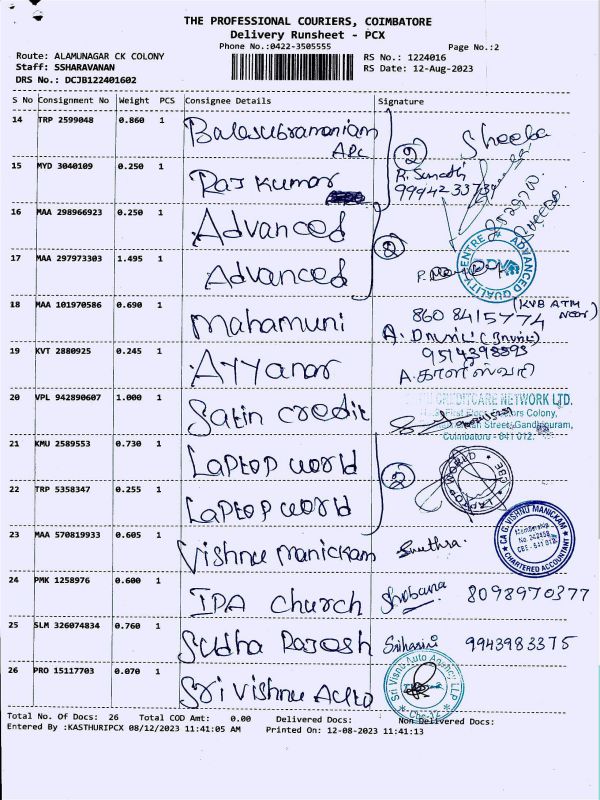 THE PROFESSIONAL COURIERS, COIMBATORE
Delivery Runsheet - PCX
Phone No.:0422-3505555
Page No.:2
Route: ALAMUNAGAR CK COLONY
RS No.: 1224016
Staff: SSHARAVANAN
RS Date: 12-Aug-2023
DRS No.: DCJB122401602
S No Consignment No Weight PCS Consignee Details Signature
14 TRP 2599048 0.860 1 Balasubramaniam
Sheeba
15 MYD 3040109 0.250 1 Raj kumar
16 MAA 298966923 0.250 1 Advanced
17 MAA 297973303 1.495 1 Advanced
ADVANCED QUALITY CENTRE
18 MAA 101970586 0.690 1 Mahamuni
860 8415774 (KVB ATM Near)
19 KVT 2880925 0.245 1 Ayyanar
A. காளீஸ்வரி
20 VPL 942890607 1.000 1 Satin credit
CREDITCARE NETWORK LTD.
Colony,
Street, Gandhipuram,
Coimbatore - 641 012.
21 KMU 2589553 0.730 1 Laptop world
22 TRP 5358347 0.255 1 Laptop world
LAPTOP WORLD CBE
23 MAA 570819933 0.605 1 Vishnu Manickam
CA G. VISHNU MANICKAM
Membership
CHARTERED ACCOUNTANT
24 PMK 1258976 0.600 1 IPA church
Shobana 8098970377
25 SLM 326074834 0.760 1 Sudha Rajesh
Sriharini 9943983375
26 PRO 15117703 0.070 1 Sri Vishnu Auto
Sri Visnu Auto Agency LLP
Total No. Of Docs: 26 Total COD Amt: 0.00 Delivered Docs: Non Delivered Docs:
Entered By :KASTHURIPCX 08/12/2023 11:41:05 AM Printed On: 12-08-2023 11:41:13